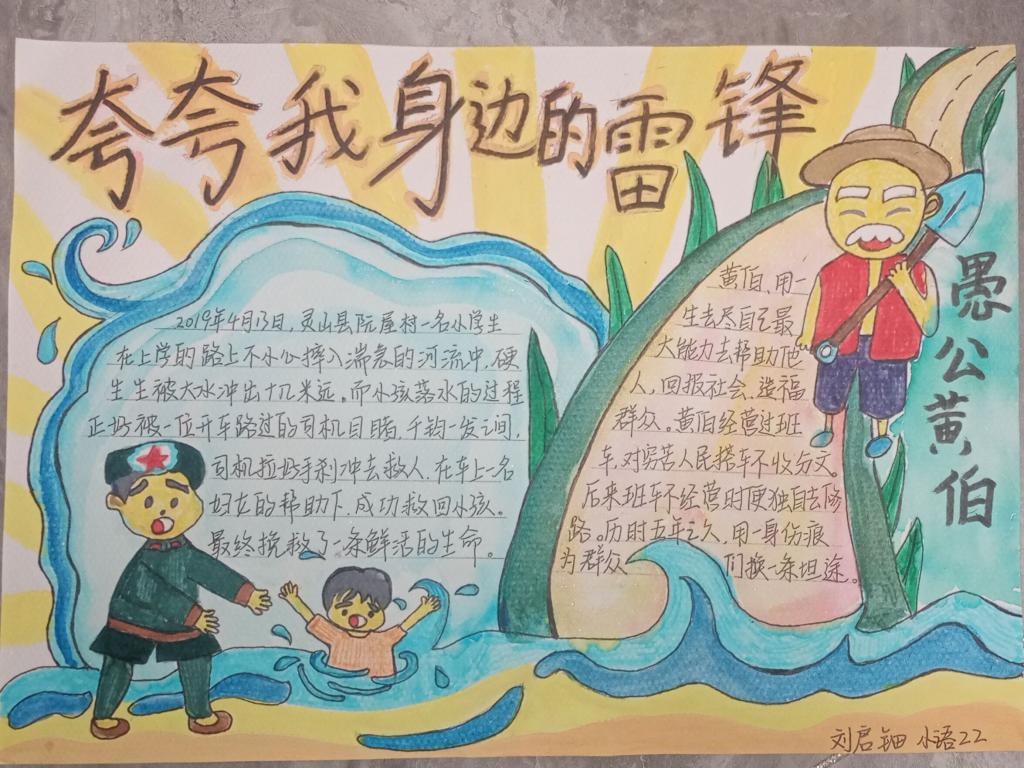 夸夸我身边的雷锋
2019年4月13日，灵山县阮屋村一名小学生
在上学的路上不小心摔入湍急的河流中，硬
生生被大水冲出十几米远。而小孩落水的过程
正好被一位开车路过的司机目睹，千钧一发之间，
司机拉好手刹冲去救人，在车上一名
妇女的帮助下，成功救回小孩。
最终挽救了一条鲜活的生命。
黄伯，用一
生去尽自己最
大能力去帮助他
人，回报社会、造福
群众。黄伯经营过班
车，对穷苦人民搭车不收分文。
后来班车不经营时便独自去修
路。历时五年之久，用一身伤痕
为群众们换一条坦途。
愚公黄伯
刘启钿 小语22